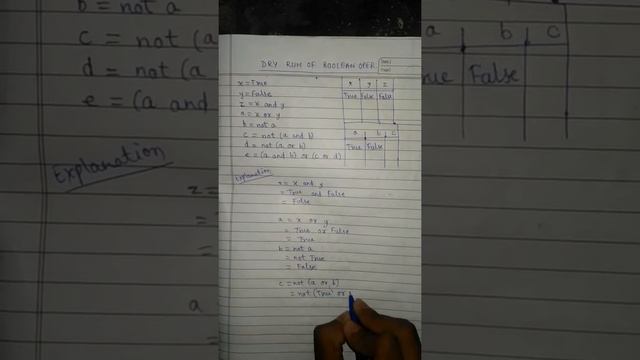 DRY RUN OF BOOLEAN OPER
x = True
y = False
z = x and y
a = x or y
b = not a
c = not (a and b)
d = not (a or b)
e = (a and b) or (c or d)
x y z
True False False
a b c
True False
Explanation
z = x and y
= True and False
= False
a = x or y
= True or False
= True
b = not a
= not True
= False
c = not (a or b)
= not (True or
b = not a
c = not (a
d = not (a
e = (a and
Explanation
z =
=
=
a
a b c
True False